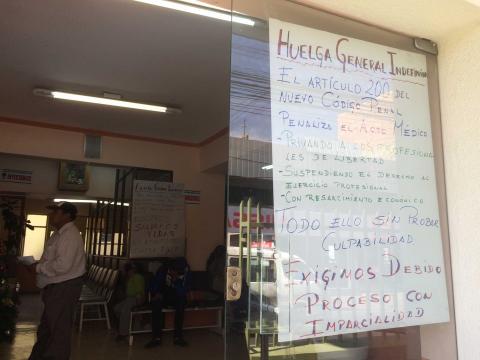 HUELGA GENERAL INDEFINIDA
EL ARTÍCULO 200 DEL
NUEVO CÓDIGO PENAL
PENALIZA EL ACTO MÉDICO
- PRIVANDO A LOS PROFESIONA
LES DE LIBERTAD
- SUSPENDIENDO EL DERECHO AL
EJERCICIO PROFESIONAL
- CON RESARCIMIENTO ECONÓMICO
TODO ELLO SIN PROBAR
CULPABILIDAD
EXIGIMOS DEBIDO
PROCESO CON
IMPARCIALIDAD
VIDAS